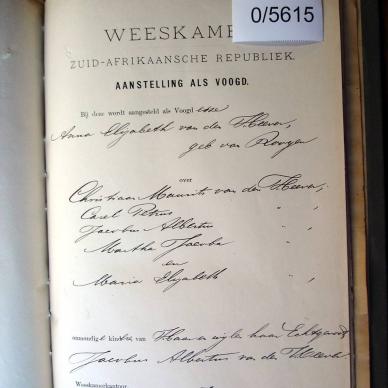 0/5615
WEESKAME
ZUID-AFRIKAANSCHE REPUBLIEK.
AANSTELLING ALS VOOGD.
Bij deze wordt aangesteld als Voogdesse
Anna Elizabeth van der Heever,
geb van Rooyen
over
Christiaan Maurits van der Heever,
Carel Petrus " ,
Jacobus Albertus " ,
Martha Jacoba " ,
en
Maria Elizabeth " ,
onmondige kinderen van Haar en wijle haar Echtgenoot
Jacobus Albertus van der Heever
Weeskamerkantoor